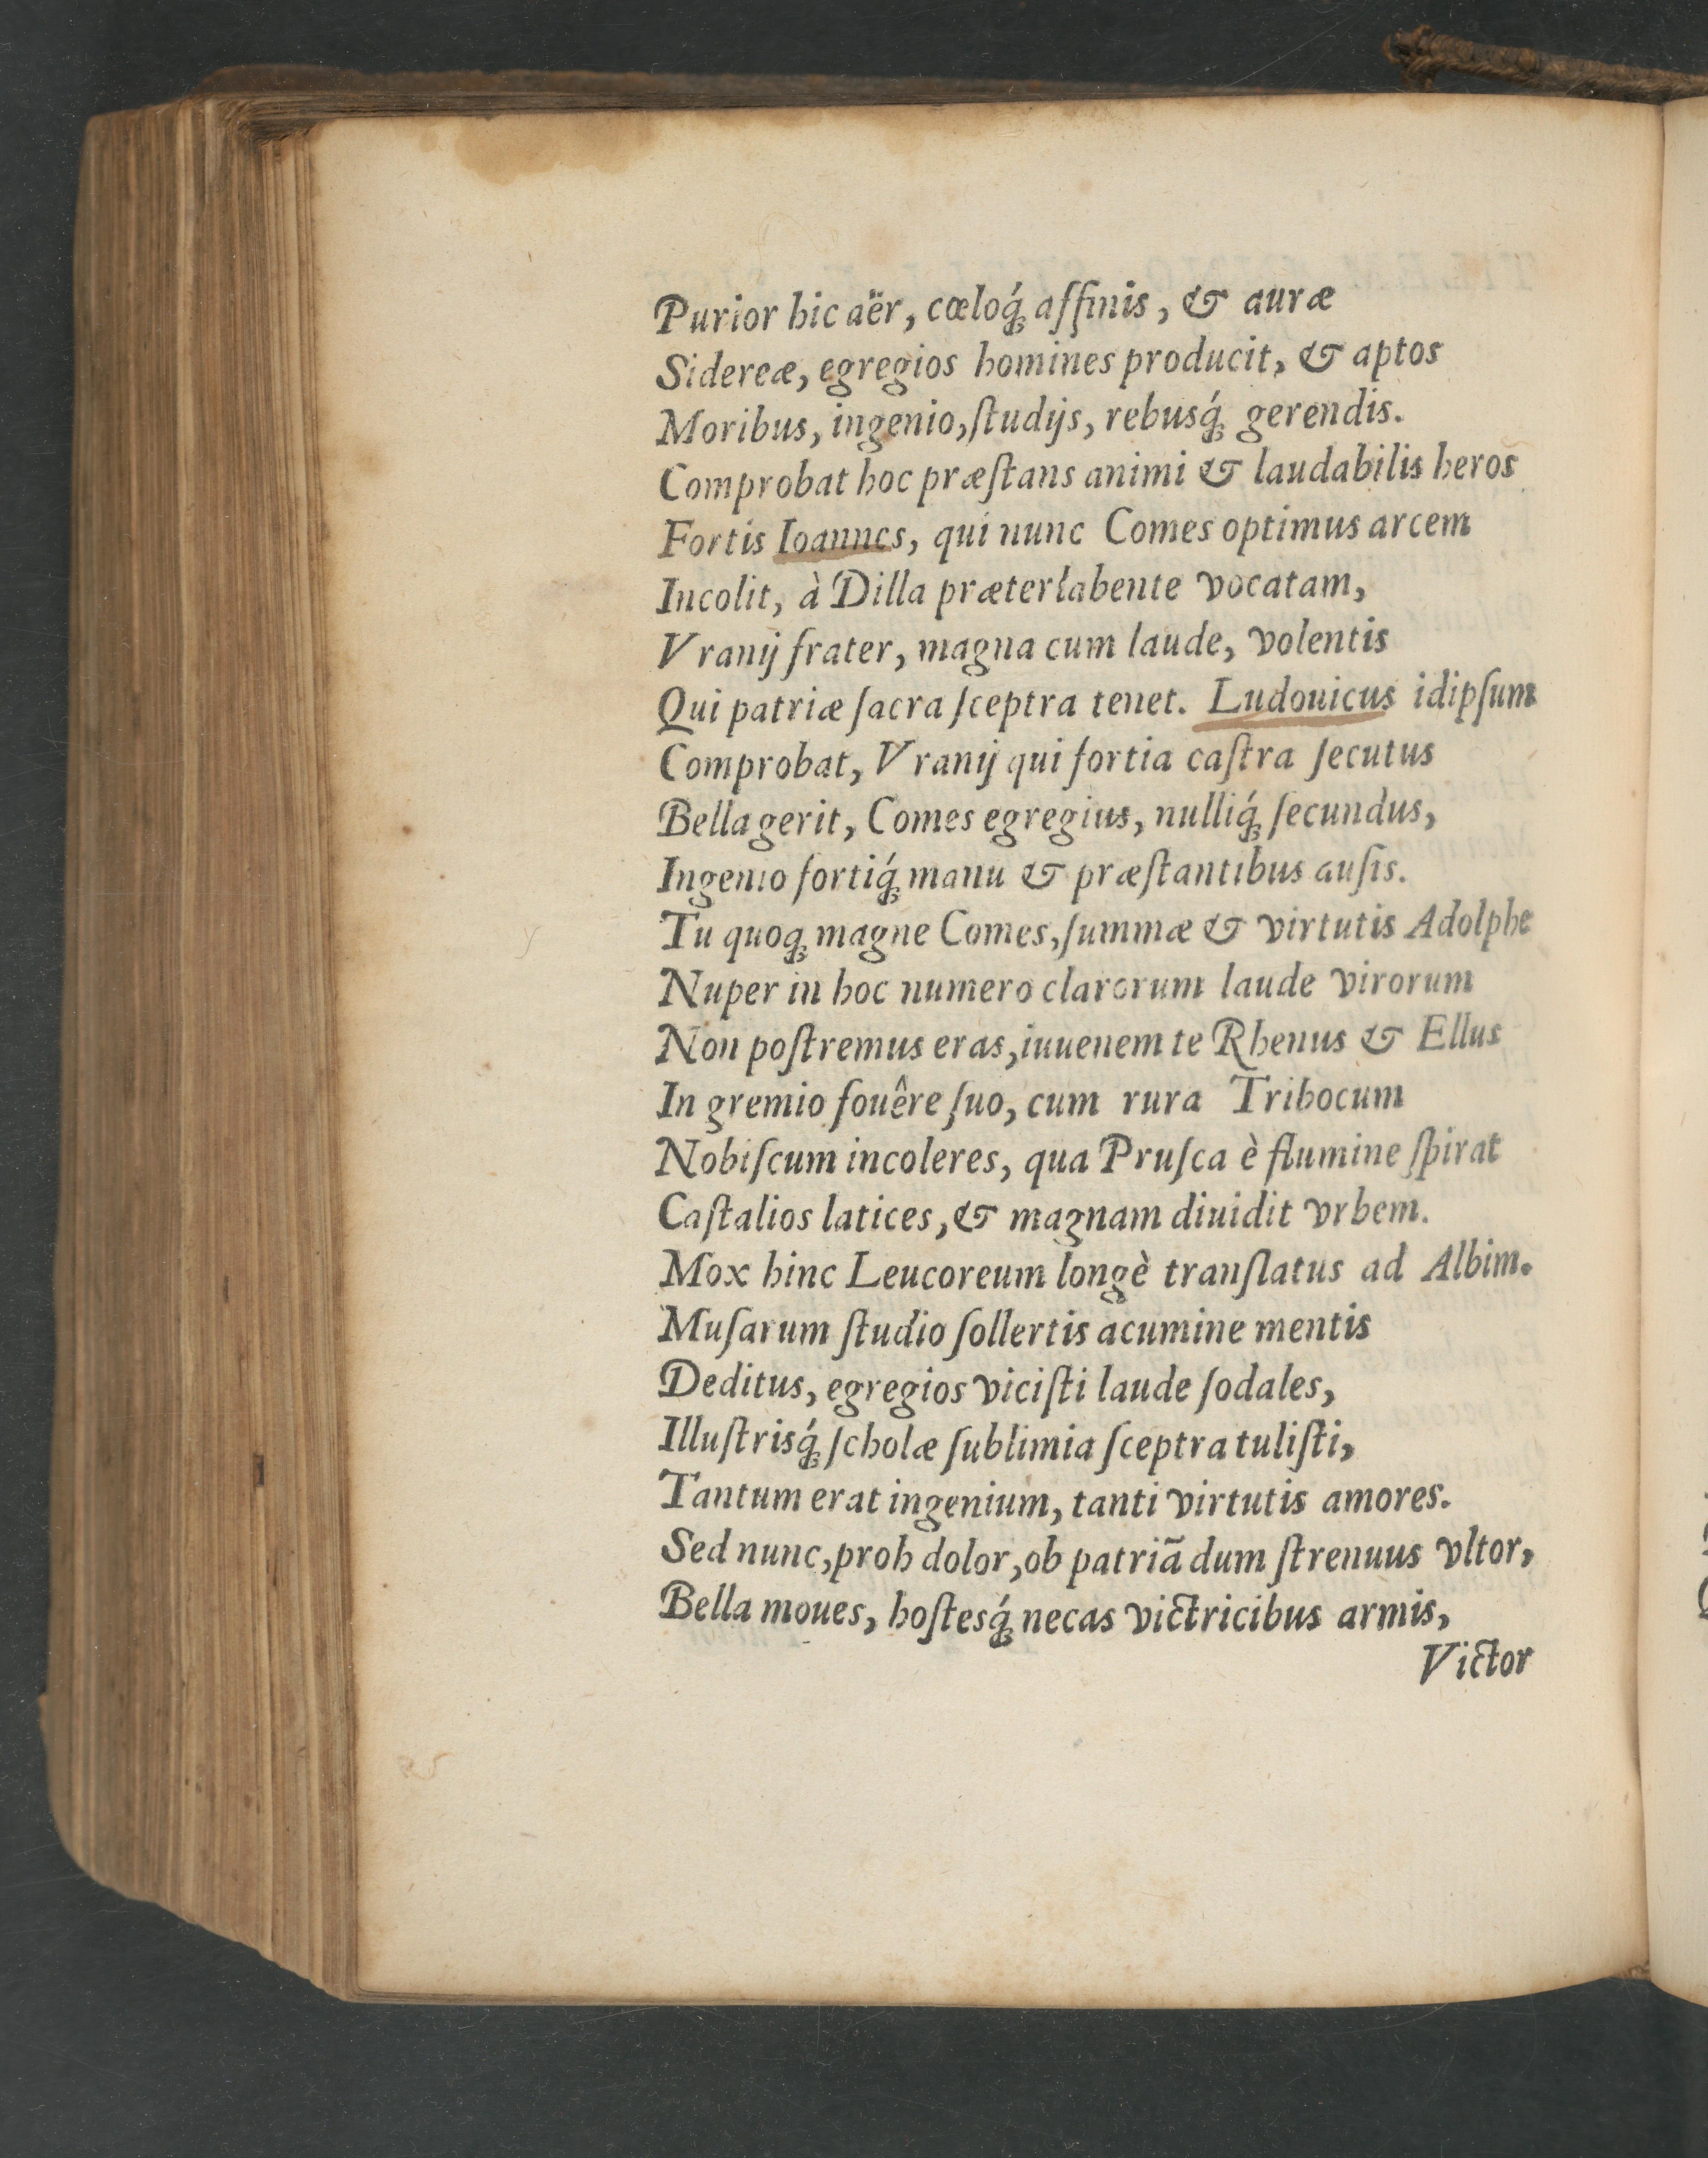 Purior hic aër, cœloq́ꝫ affinis, & auræ
Sidereæ, egregios homines producit, & aptos
Moribus, ingenio, ſtudijs, rebusq́ꝫ gerendis.
Comprobat hoc præſtans animi & laudabilis heros
Fortis Ioannes, qui nunc Comes optimus arcem
Incolit, à Dilla præterlabente vocatam,
Vranij frater, magna cum laude, volentis
Qui patriæ ſacra ſceptra tenet. Ludouicus idipſum
Comprobat, Vranij qui fortia caſtra ſecutus
Bella gerit, Comes egregius, nulliq́ꝫ ſecundus,
Ingenio fortiq́ꝫ manu & præſtantibus auſis.
Tu quoqꝫ magne Comes, ſummæ & virtutis Adolphe
Nuper in hoc numero clarorum laude virorum
Non poſtremus eras, iuuenem te Rhenus & Ellus
In gremio fouêre ſuo, cum rura Tribocum
Nobiſcum incoleres, qua Pruſca è flumine ſpirat
Caſtalios latices, & magnam diuidit vrbem.
Mox hinc Leucoreum longè tranſlatus ad Albim.
Muſarum ſtudio ſollertis acumine mentis
Deditus, egregios viciſti laude ſodales,
Illuſtrisq́ꝫ ſcholæ ſublimia ſceptra tuliſti,
Tantum erat ingenium, tanti virtutis amores.
Sed nunc, proh dolor, ob patriã dum ſtrenuus vltor,
Bella moues, hoſtesq́ꝫ necas victricibus armis,
Victor